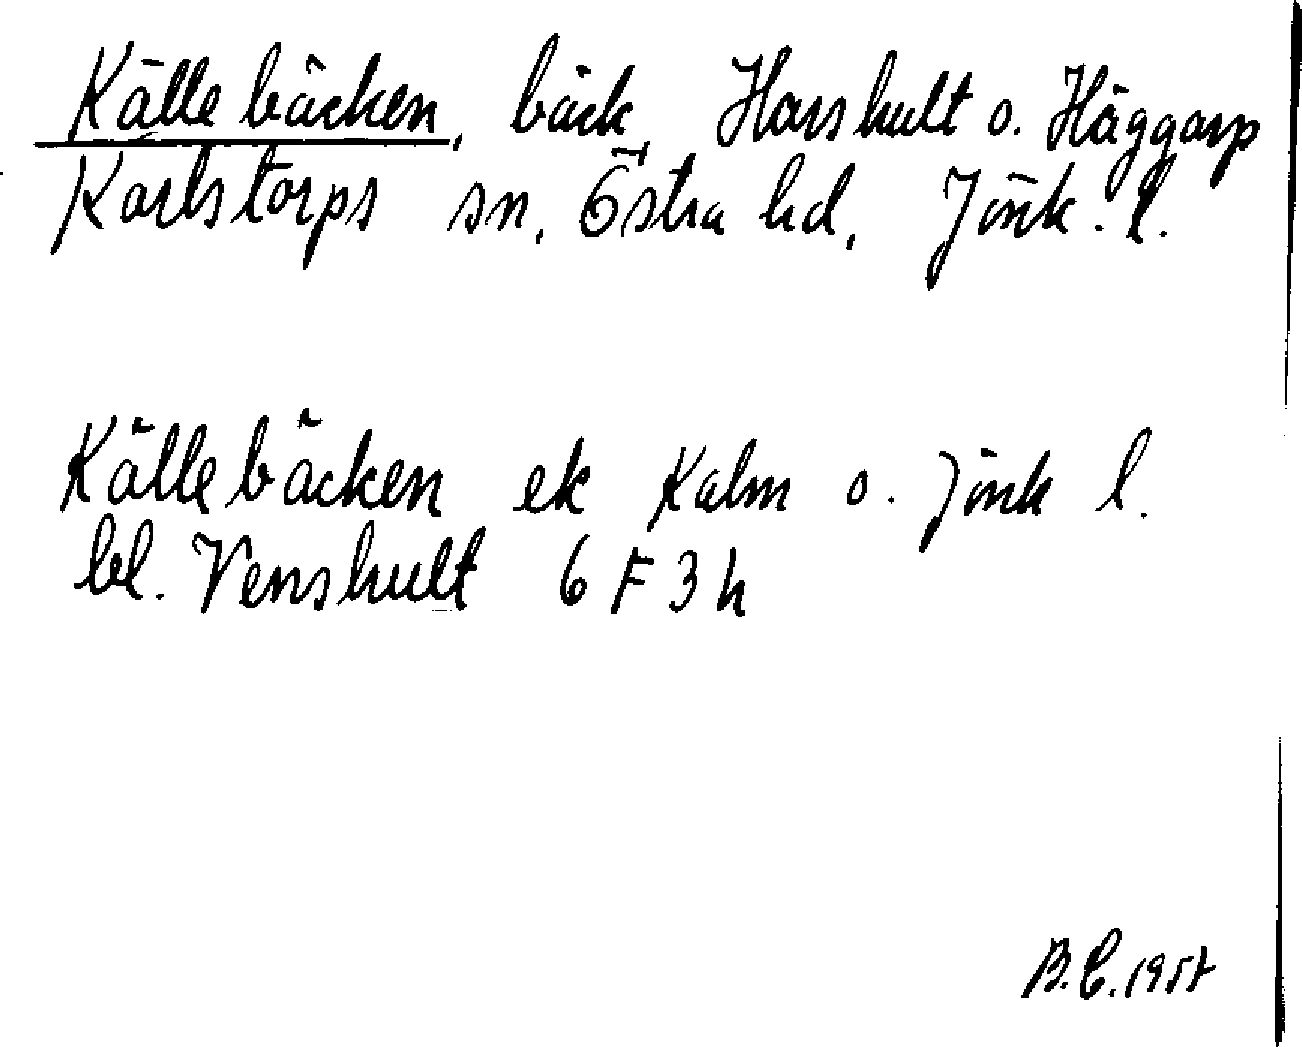 Källebäcken, bäck, Harshult o. Häggarp
Karlstorps sn, Östra hd, Jönk. l.
Källebäcken ek Kalm o. Jönk l.
bl. Venshult 6 F 3 h
B.C. 1957